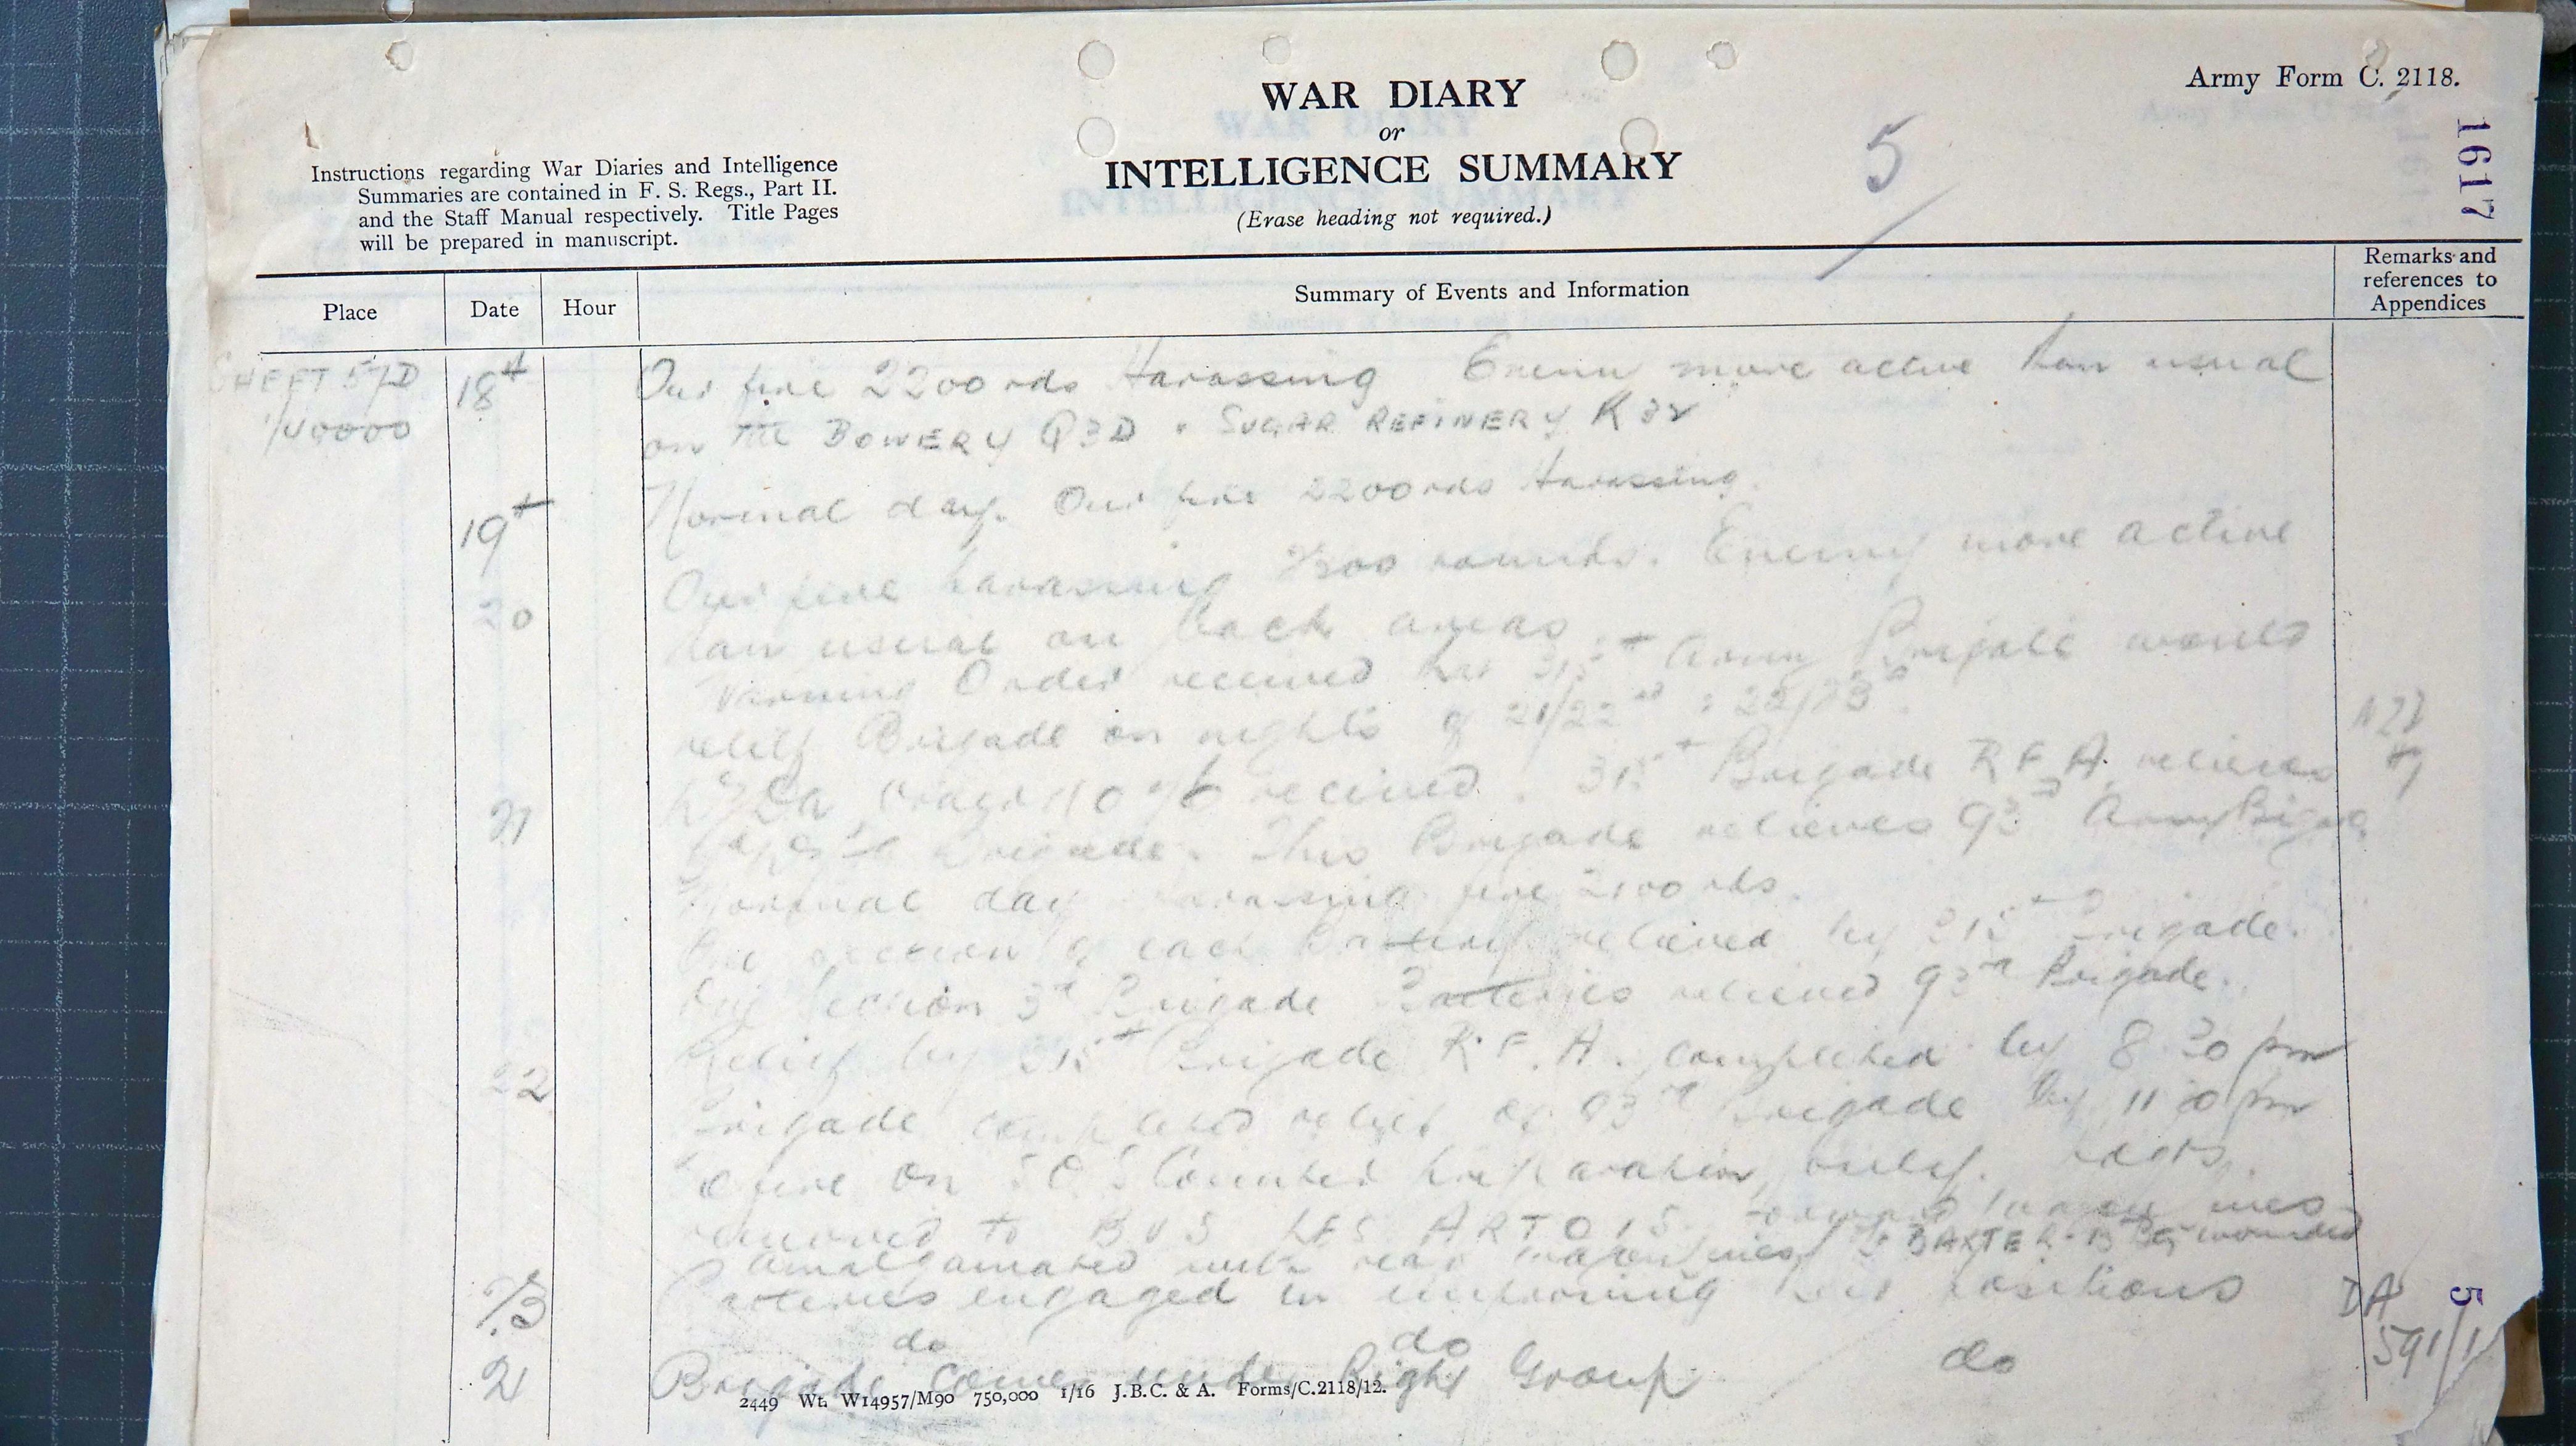 Army Form C. 2118.
WAR DIARY
or
INTELLIGENCE SUMMARY
(Erase heading not required.)
5
1617
Instructions regarding War Diaries and Intelligence
Summaries are contained in F. S. Regs., Part II.
and the Staff Manual respectively. Title Pages
will be prepared in manuscript.
Place Date Hour Summary of Events and Information Remarks and references to Appendices
SHEET 57D 18th Our fire 2200 rds Harassing Enemy more active than usual
1/40000 on the BOWERY Q3D SUGAR REFINERY K
19th Normal day. Our fire 2200 rds Harassing.
20 Our fire harassing rounds. Enemy more active
than usual on back areas.
Warning Order received that 315th Army Brigade would
relieve Brigade on nights of 21/22nd 22/23rd.
21 received. 315th Brigade R.F.A. relieves
Brigade. This Brigade relieves 93rd Army Brigade.
Normal day harassing fire 2100 rds.
One section of each Battery relieved by 315th Brigade.
One section 3rd Brigade Batteries relieved 93rd Brigade.
22 Relief by 315th Brigade R.F.A. completed by 8.30 pm
Brigade completed relief of 93rd Brigade by 11 pm
fire on S.O.S. Counter preparation only.
removed to BUS LES ARTOIS. wagon lines
amalgamated with rear wagon lines. BAXTER B wounded
23 Batteries engaged in improving positions
do do do
2 Brigade comes under Right Group
DA
591/1
5
2449 Wt. W14957/M90 750,000 1/16 J.B.C. & A. Forms/C.2118/12.